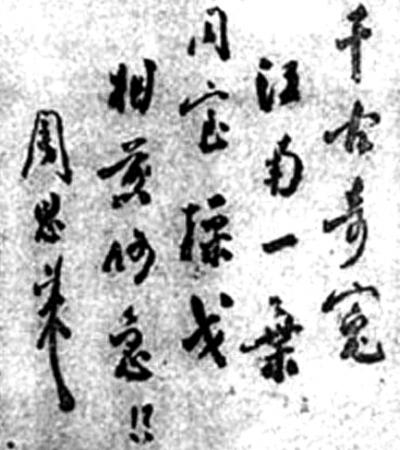 千古奇寃
江南一葉
同室操戈
相煎何急？！
周恩来